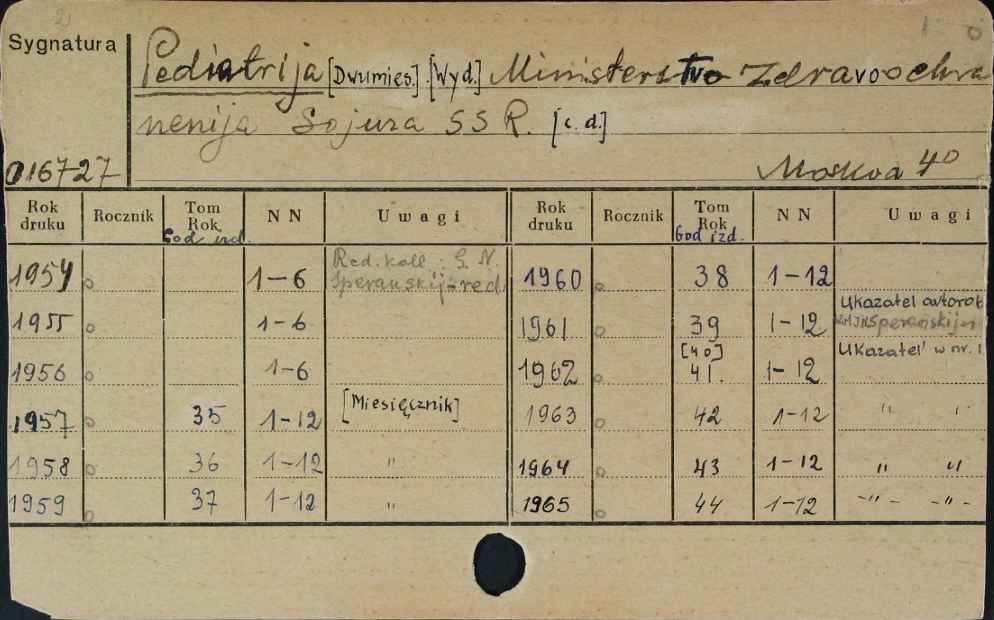 2
1 0
Sygnatura
Pediatrija [Dwumies.] [Wyd.] Ministerstvo Zdravoochra
nenija Sojuza SSR. [c.d.]
016727
Moskva 40
Rok druku Rocznik Tom Rok N N Uwagi Rok druku Rocznik Tom Rok N N Uwagi
God izd. God izd.
1954 1-6 Red. koll.: G. N. Speranskij-red. 1960 38 1-12
1955 1-6 1961 39 1-12 Ukazatel avtorob Speranskij
1956 1-6 1962 [40] 41. 1-12 Ukazatel' w nr. 1
1957 35 1-12 [Miesięcznik] 1963 42 1-12 " "
1958 36 1-12 " 1964 43 1-12 " "
1959 37 1-12 " 1965 44 1-12 -"- -"-